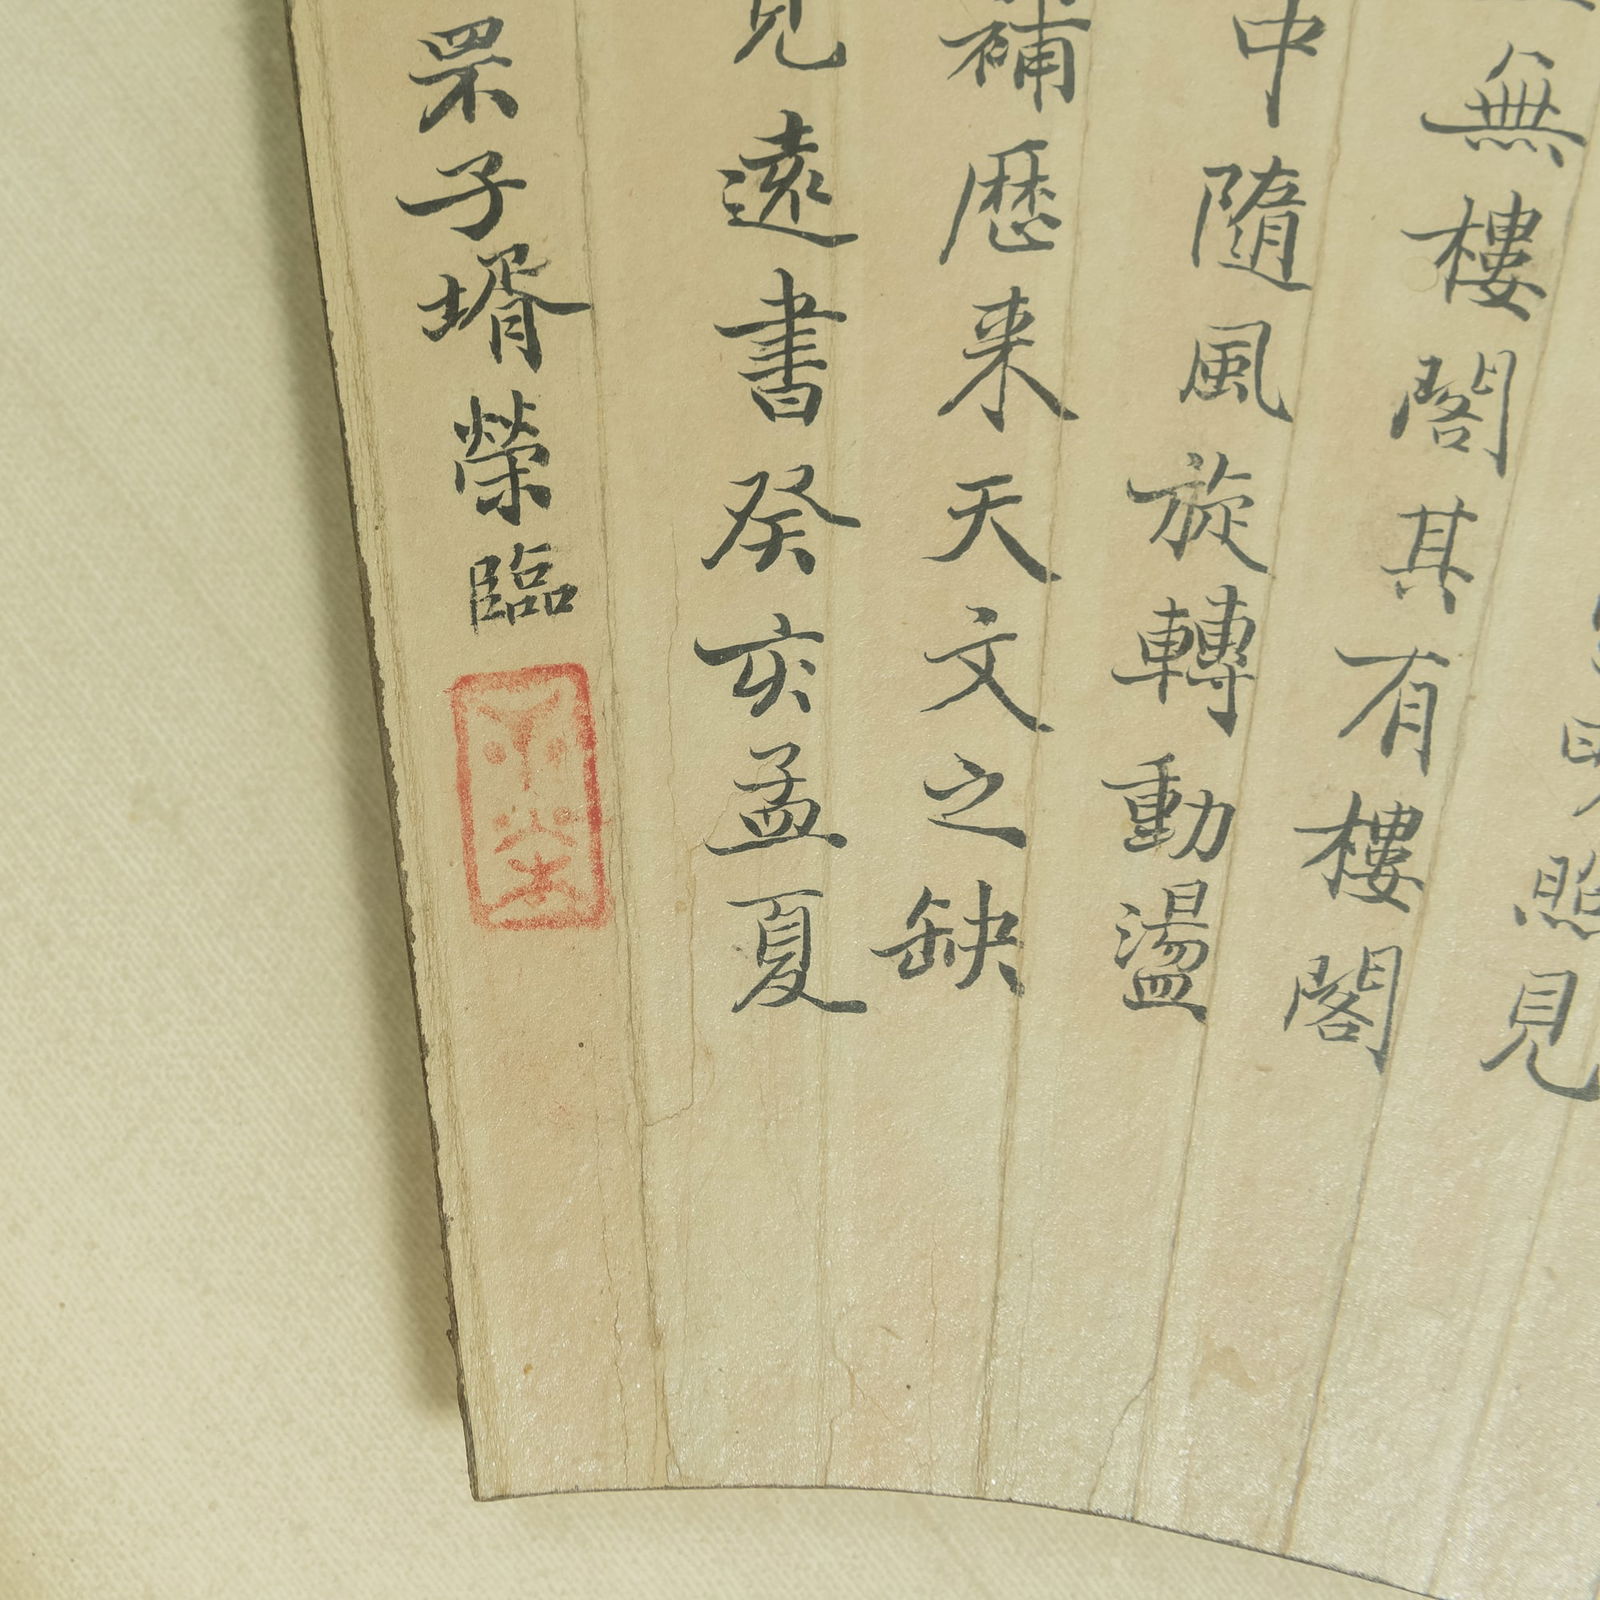 明照見
無樓閣其有樓閣
中隨風旋轉動盪
補歷来天文之缺
見遠書癸亥孟夏
子壻榮臨